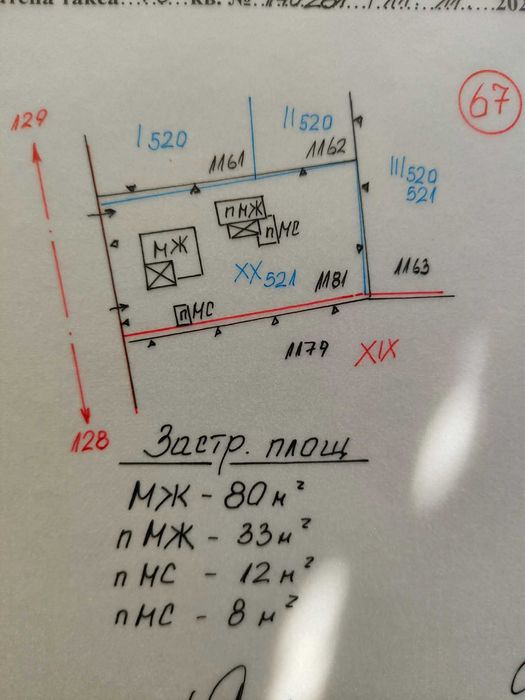 такса
кв. №
67
129
I 520
II 520
1161
1162
III 520
521
пМЖ
пМС
МЖ
XX 521
1181
1163
пМС
1179
XIX
128
Застр. площ
МЖ - 80 м²
пМЖ - 33 м²
пМС - 12 м²
пМС - 8 м²